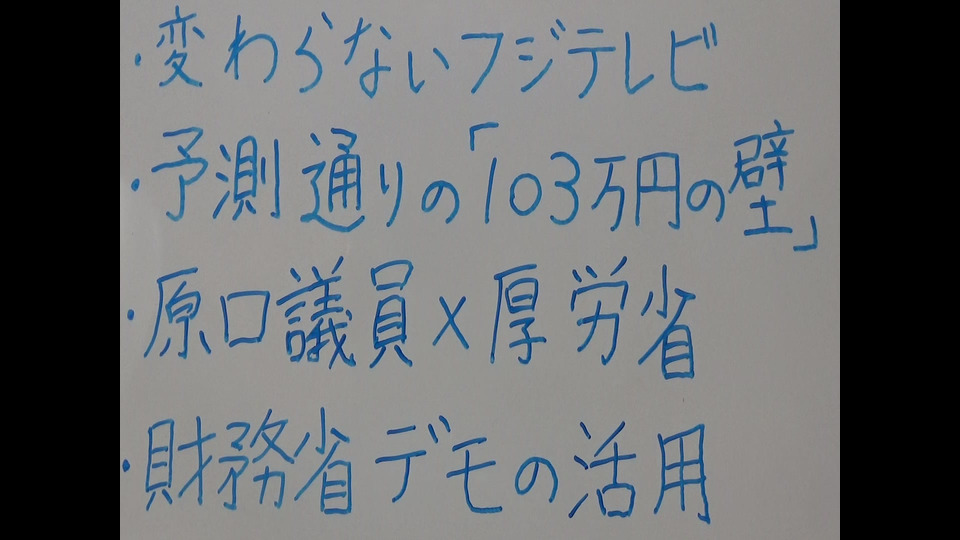 ・変わらないフジテレビ
・予測通りの「103万円の壁」
・原口議員×厚労省
・財務省デモの活用